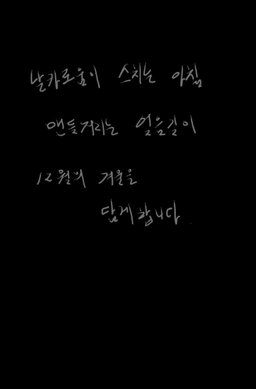 날카로움이 스치는 아침
맨들거리는 얼음길이
12월의 겨울을
답게 합니다